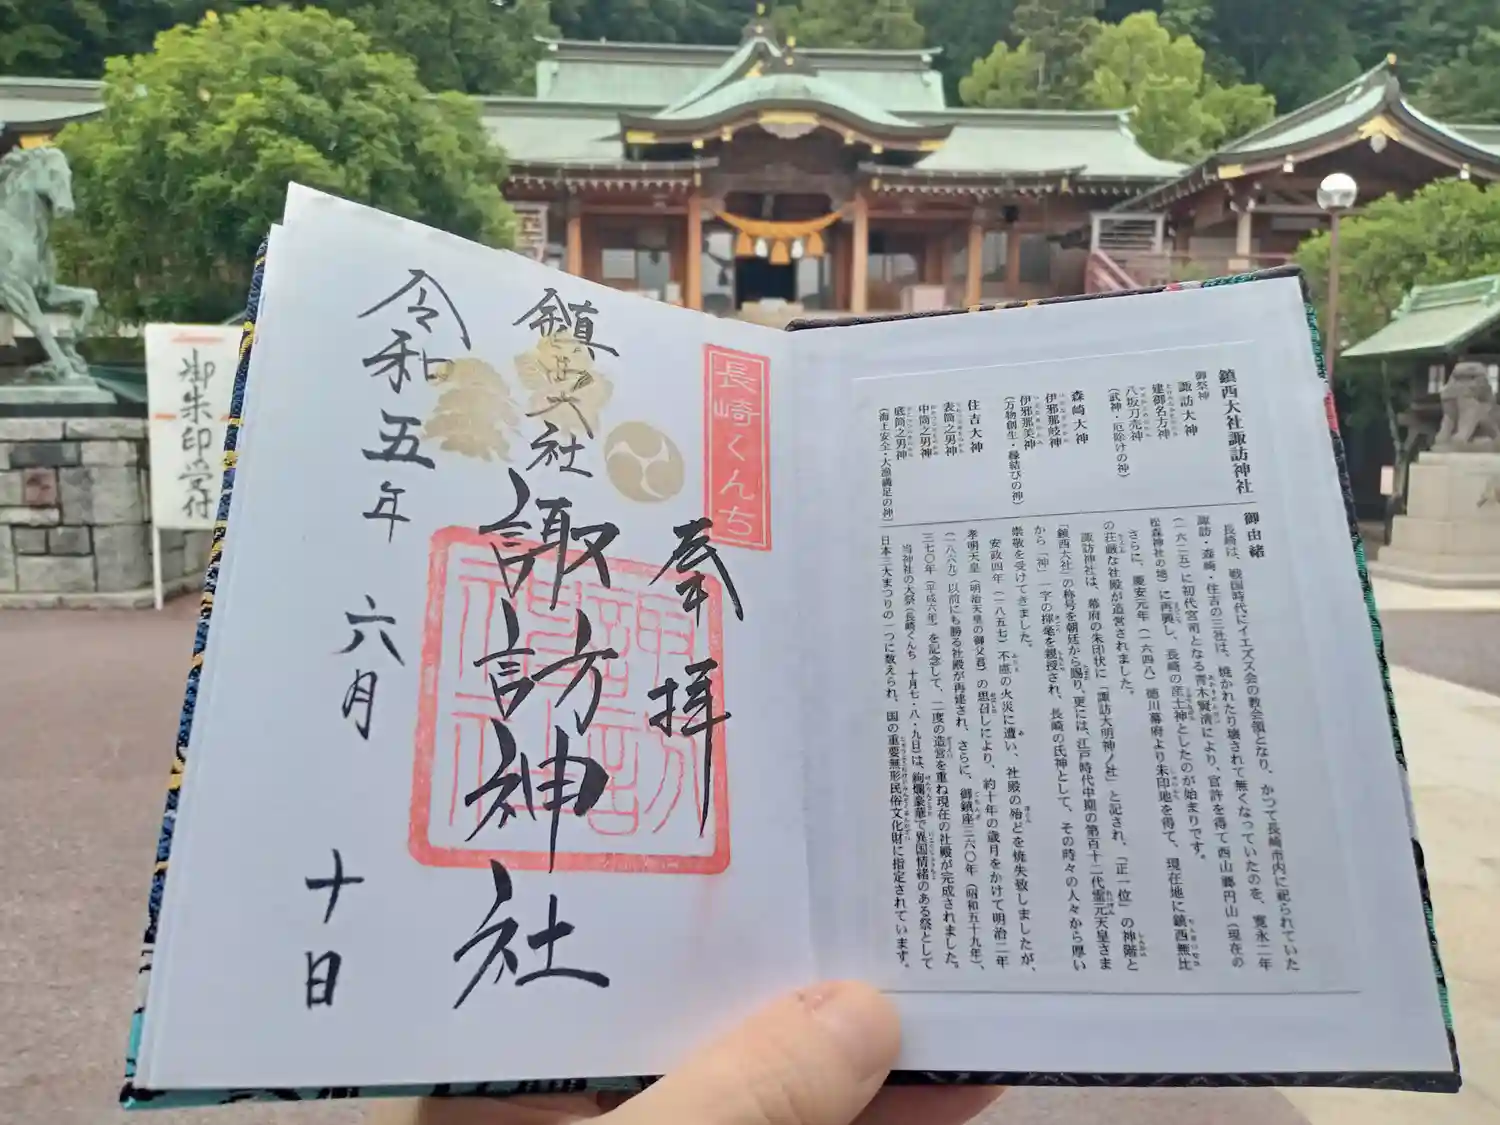 長崎くんち
奉拝
鎮西大社
諏訪神社
令和五年 六月 十日
御朱印受付
鎮西大社諏訪神社
御祭神
諏訪大神
建御名方神
八坂刀売神
(武神・厄除けの神)
森崎大神
伊邪那岐神
伊邪那美神
(万物創生・縁結びの神)
住吉大神
表筒之男神
中筒之男神
底筒之男神
(海上安全・大漁満足の神)
御由緒
長崎は、戦国時代にイエズス会の教会領となり、かつて長崎市内に祀られていた
諏訪・森崎・住吉の三社は、焼かれたり壊されて無くなっていたのを、寛永二年
(一六二五)に初代宮司となる青木賢清により、官許を得て西山郷円山(現在の
松森神社の地)に再興し、長崎の産土神としたのが始まりです。
さらに、慶安元年(一六四八)徳川幕府より朱印地を得て、現在地に鎮西無比
の荘厳な社殿が造営されました。
諏訪神社は、幕府の朱印状に「諏訪大明神ノ社」と記され、「正一位」の神階と
「鎮西大社」の称号を朝廷から賜り、更には、江戸時代中期の第百十二代霊元天皇さま
から「神」一字の揮毫を親授され、長崎の氏神として、その時々の人々から厚い
崇敬を受けてきました。
安政四年(一八五七)不慮の火災に遭い、社殿の殆どを焼失致しましたが、
孝明天皇(明治天皇の御父君)の思召しにより、約十年の歳月をかけて明治二年
(一八六九)以前にも勝る社殿が再建され、さらに、御鎮座三六〇年(昭和五十九年)、
三七〇年(平成六年)を記念して、二度の造営を重ね現在の社殿が完成されました。
当神社の大祭(長崎くんち 十月七・八・九日)は、絢爛豪華で異国情緒のある祭として
日本三大まつりの一つに数えられ、国の重要無形民俗文化財に指定されています。